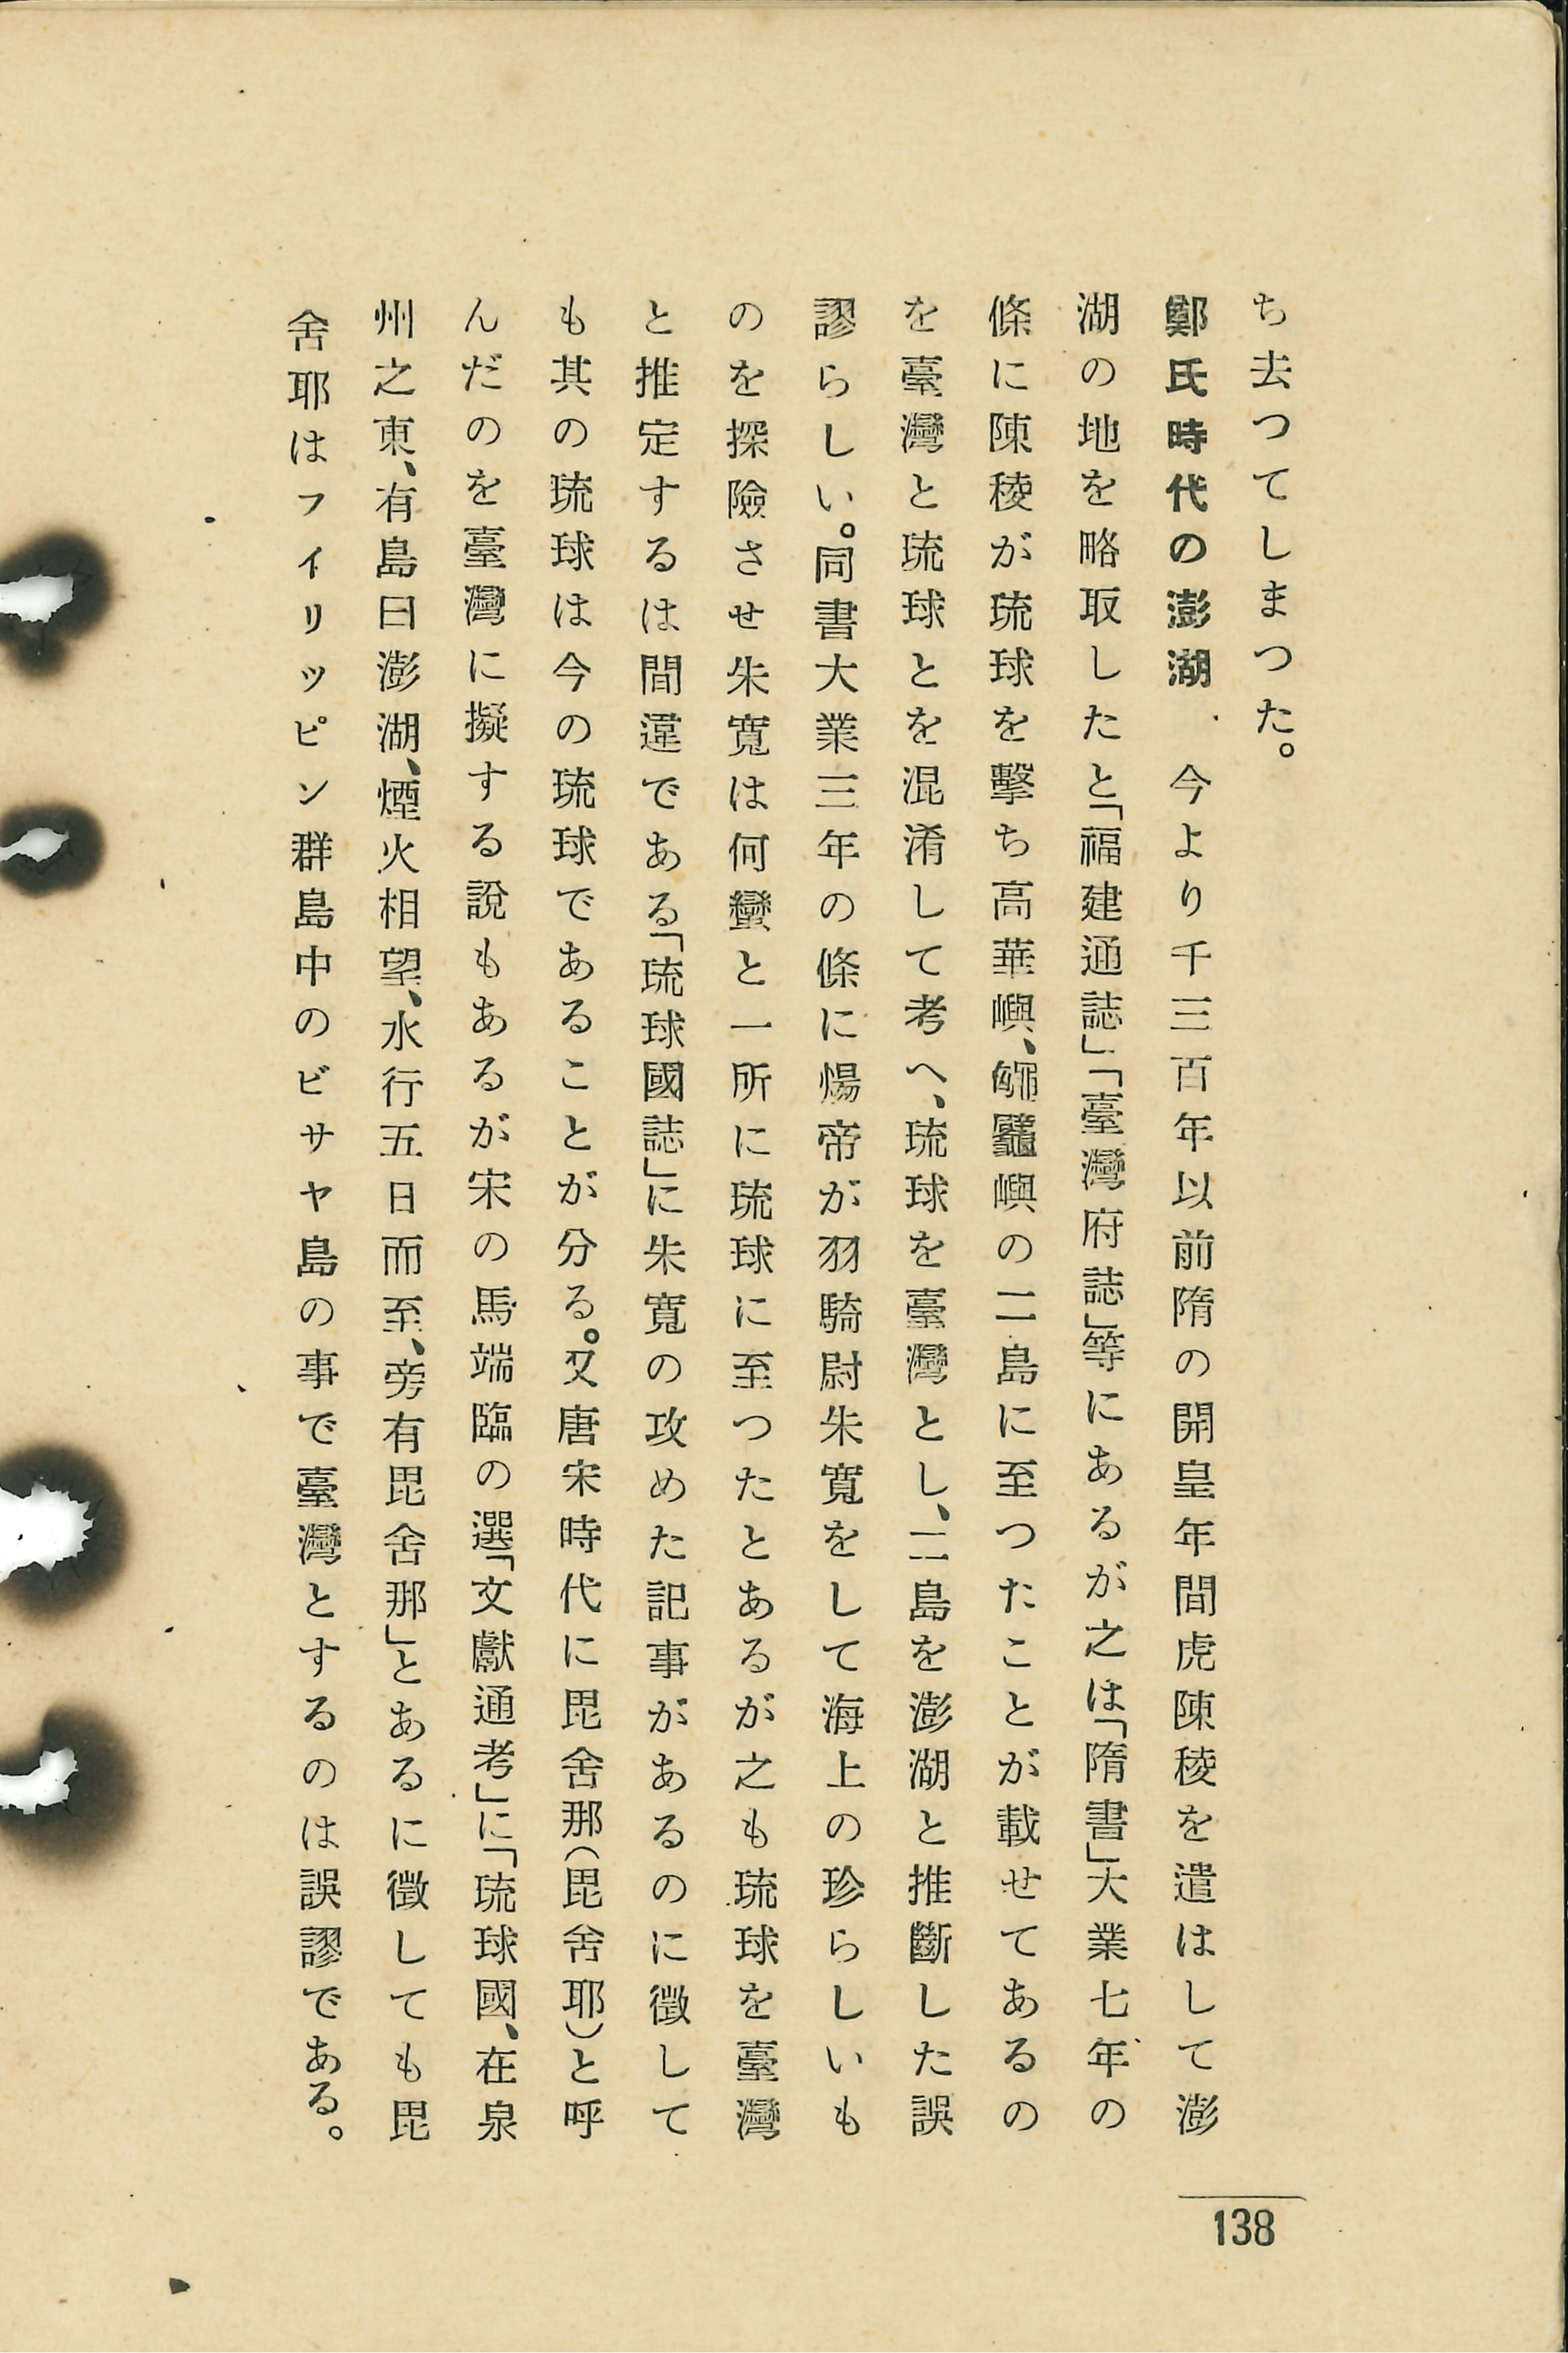 ち去つてしまつた。
鄭氏時代の澎湖　今より千三百年以前隋の開皇年間虎陳稜を遣はして澎
湖の地を略取したと「福建通誌」「臺灣府誌」等にあるが之は「隋書」大業七年の
條に陳稜が琉球を擊ち高華嶼、𪓟鼊嶼の二島に至つたことが載せてあるの
を臺灣と琉球とを混淆して考へ、琉球を臺灣とし、二島を澎湖と推斷した誤
謬らしい。同書大業三年の條に煬帝が羽騎尉朱寬をして海上の珍らしいも
のを探險させ朱寬は何蠻と一所に琉球に至つたとあるが之も琉球を臺灣
と推定するは間違である「琉球國誌」に朱寬の攻めた記事があるのに徵して
も其の琉球は今の琉球であることが分る。又唐宋時代に毘舍那（毘舍耶）と呼
んだのを臺灣に擬する說もあるが宋の馬端臨の選「文獻通考」に「琉球國、在泉
州之東、有島曰澎湖、煙火相望、水行五日而至、旁有毘舍那」とあるに徵しても毘
舍耶はフイリッピン群島中のビサヤ島の事で臺灣とするのは誤謬である。
138